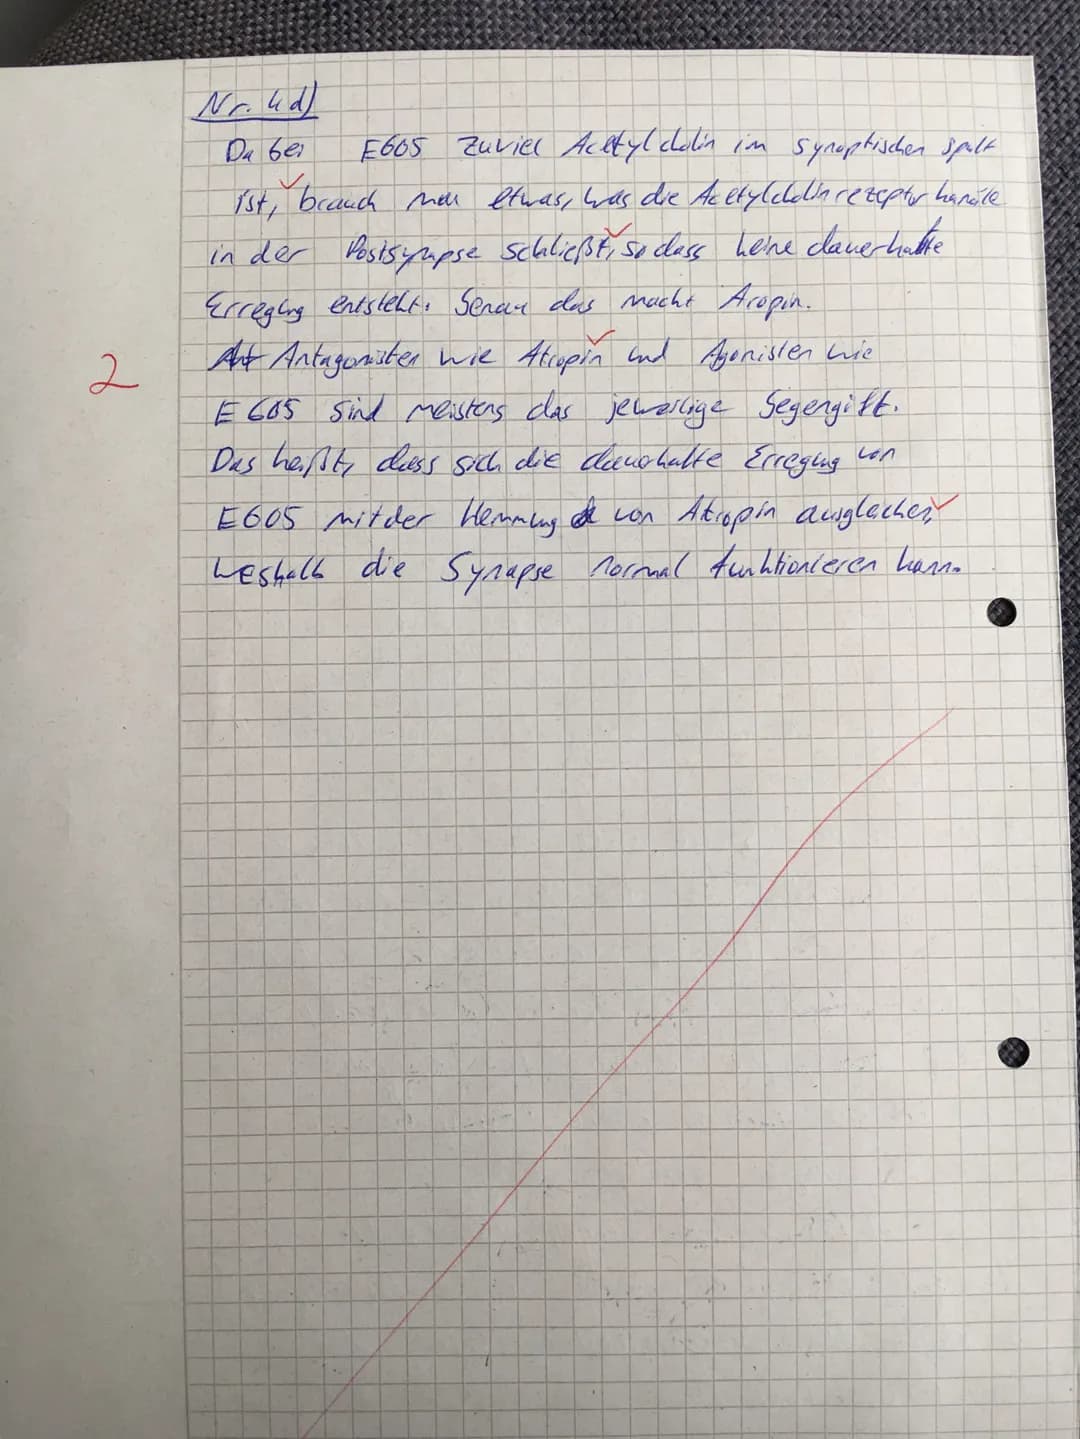 Nr. 4d)
Da bei E605 zuviel Acetylcholin im synaptischen spalt
ist, brauch man etwas, was die Acetylcholinrezeptorkanäle
in der Postsynapse schließt, so dass keine dauerhafte
Erregung entsteht. Genau das macht Aropin.
Antagonisten wie Atropin und Agonisten wie
2
E605 sind meistens das jeweilige Gegengift.
Das heißt, dass sich die dauerhafte Erregung von
E605 mit der Hemmung von Atropin ausgleichen,
weshalb die Synapse normal funktionieren kann.